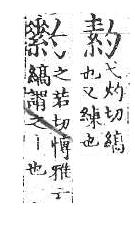 弋灼切縞
也又練也
之若切博雅云
縞謂之丨也